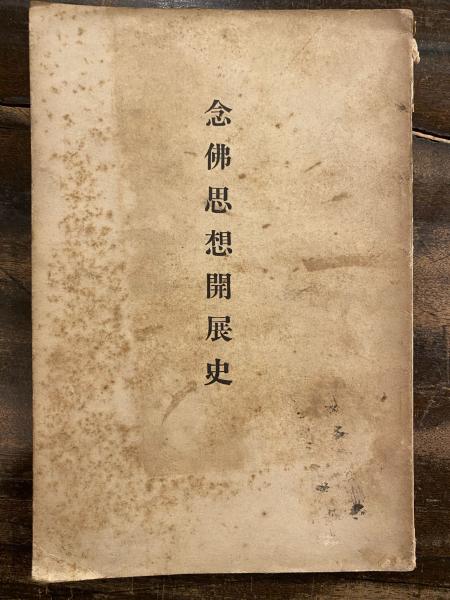 念佛思想開展史